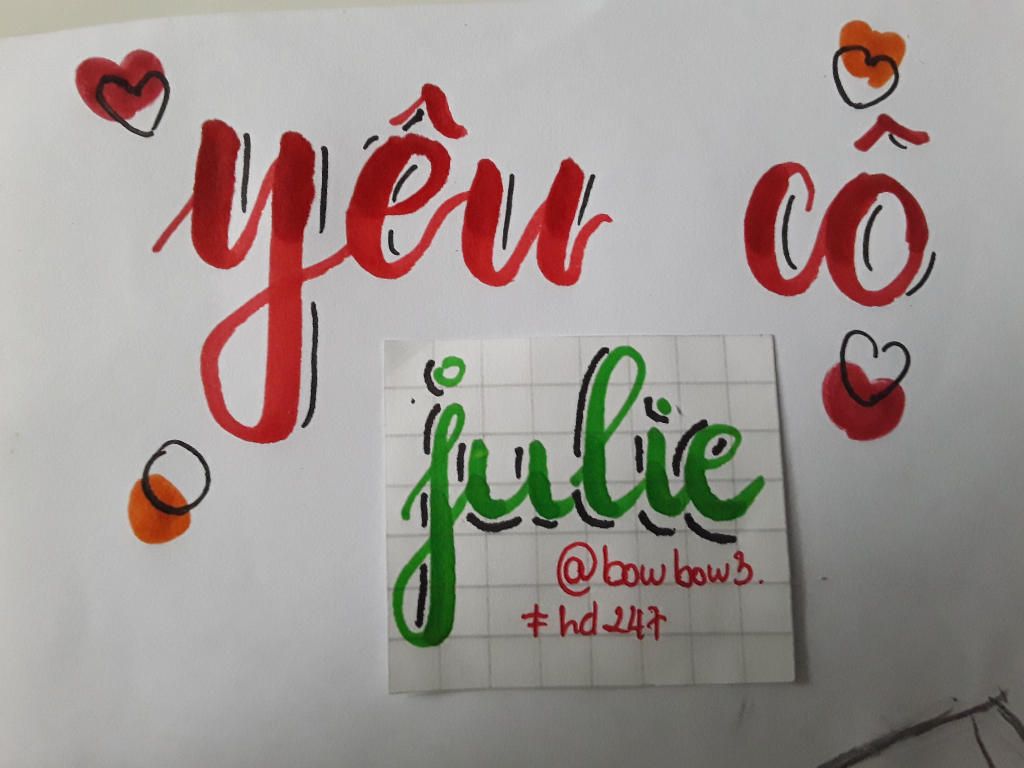 yêu cô
julie
@bowbow3.
#hd247